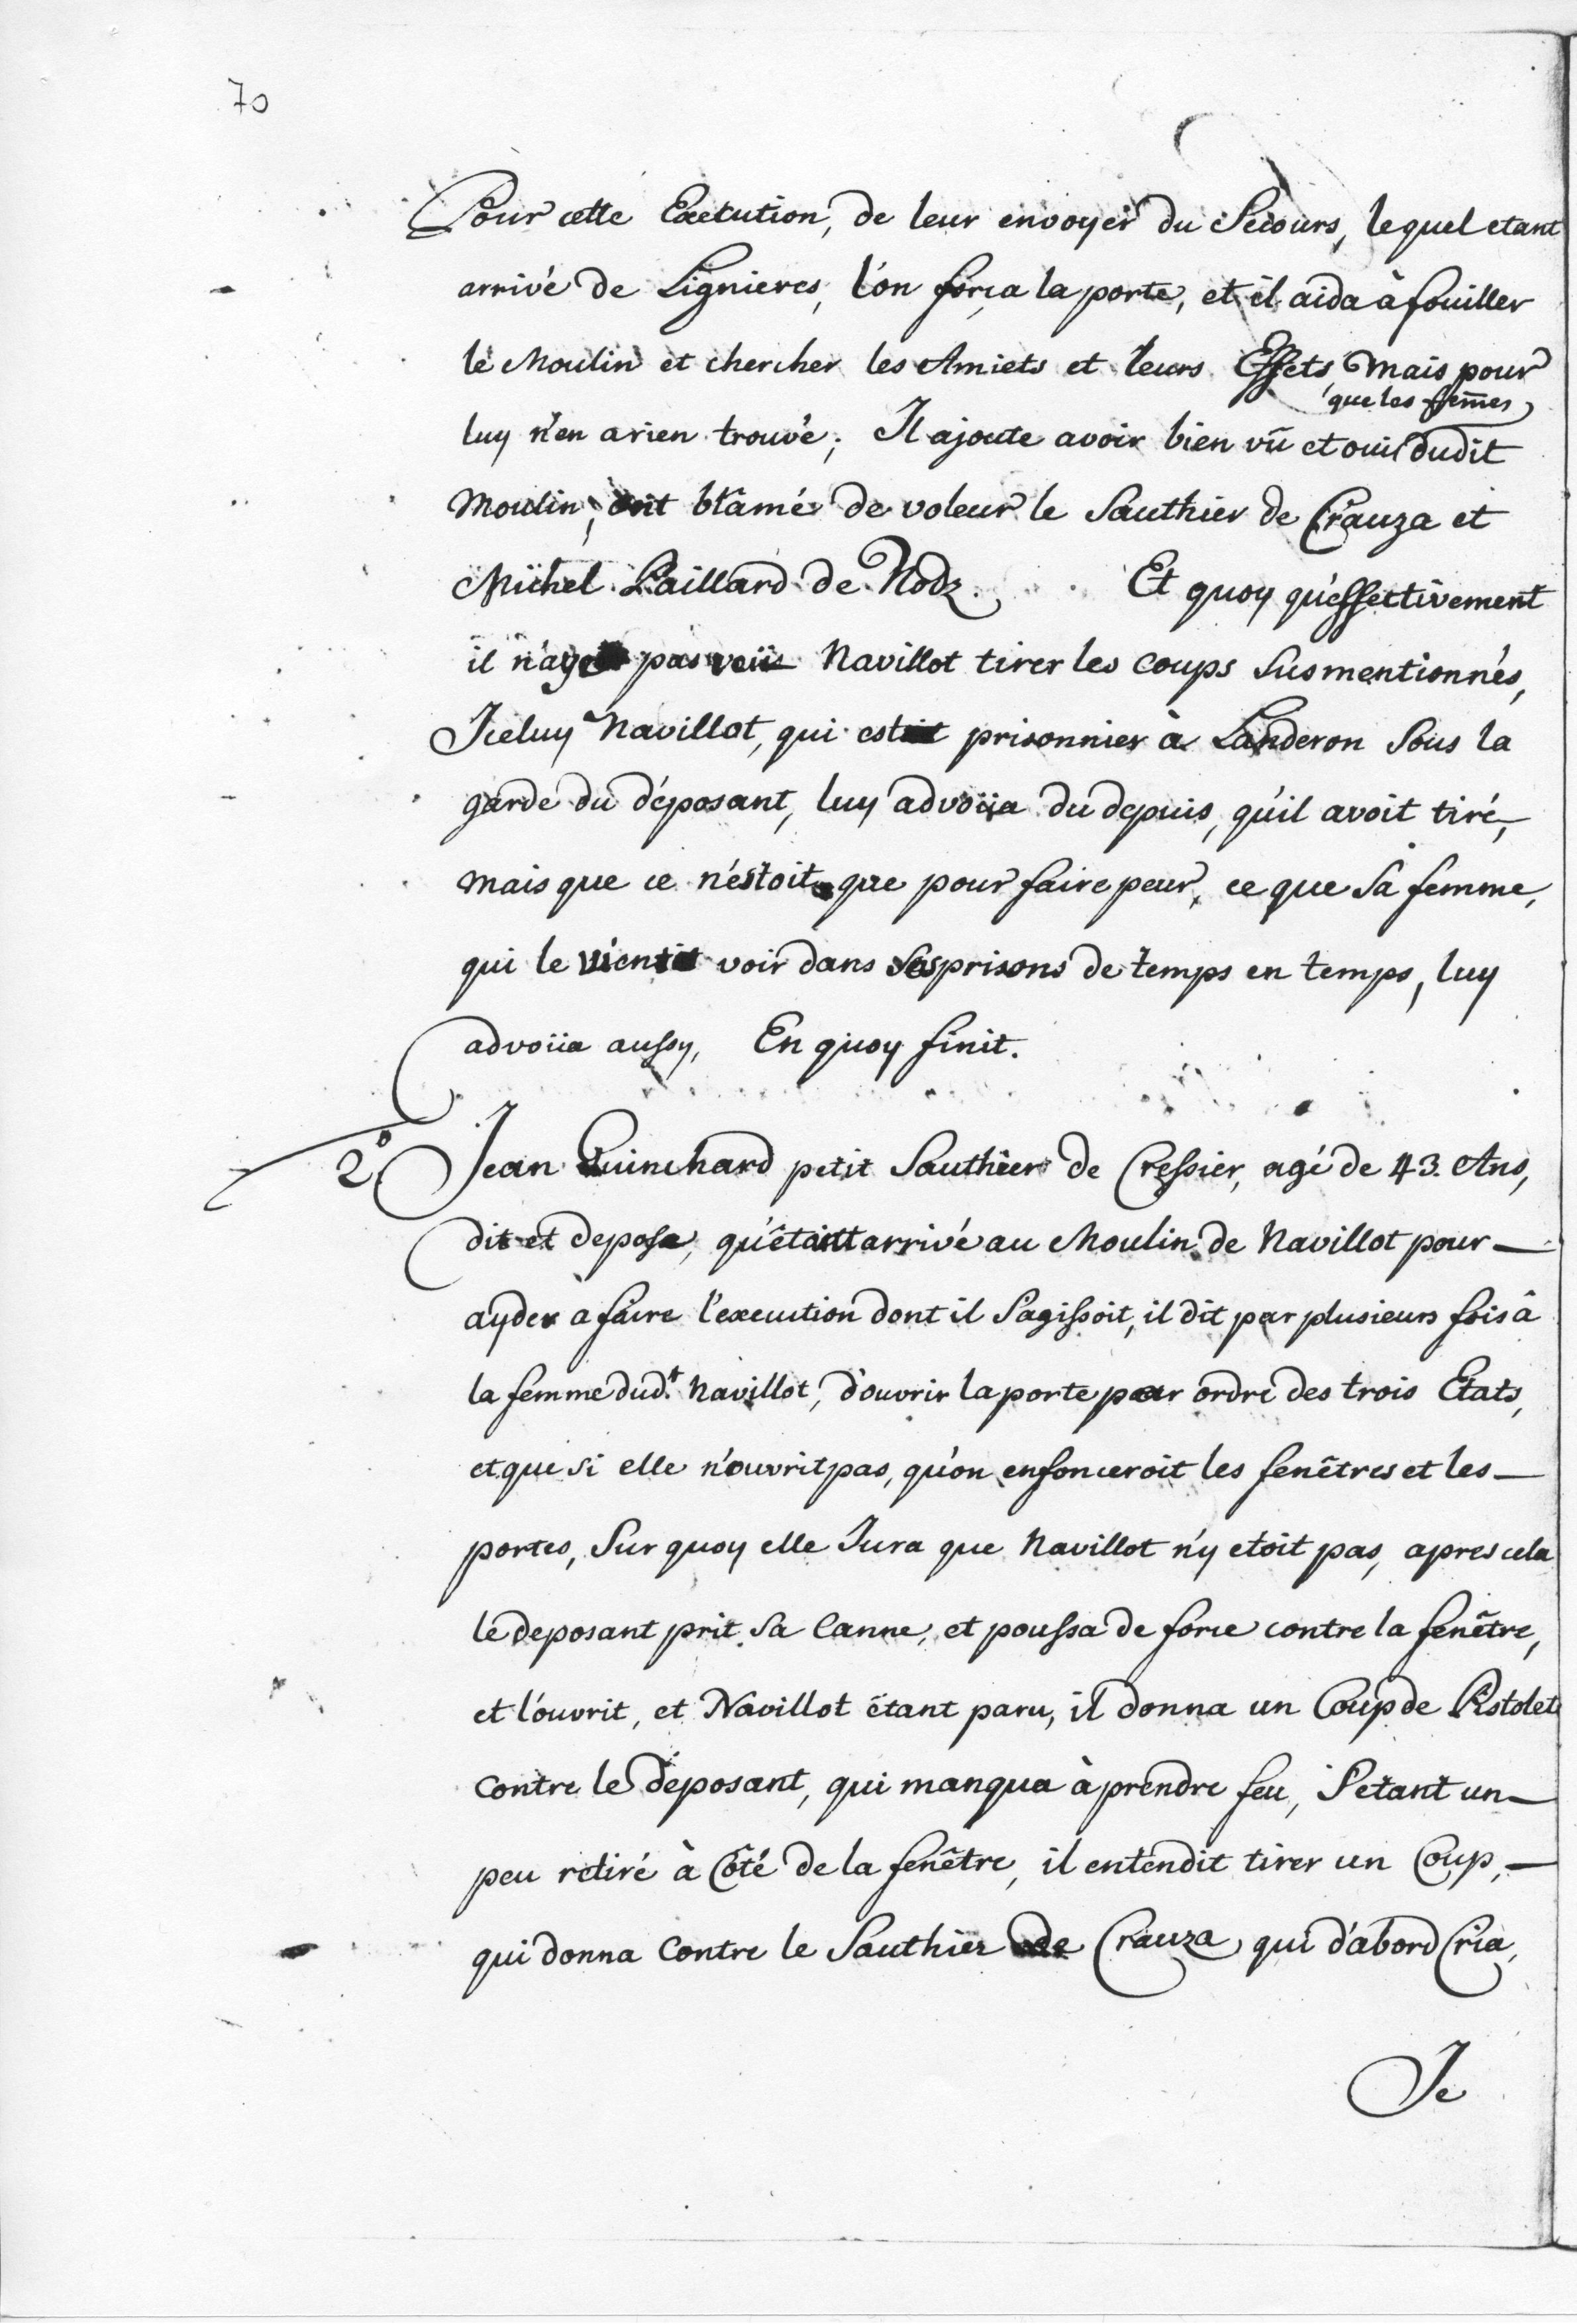 70
Pour cette Execution, de leur envoyer du Secours, lequel etant
arrivé de Lignieres, l'on força la porte, et il aida à fouiller
le Moulin et chercher les Amiets et leurs Effets, mais pour
que les fem̃es
luy n'en a rien trouvé; Il ajoute avoir bien vû et oui dudit
Moulin, ont blâmé de voleur le Sauthier de Crauza et
Michel Paillard de Nodz. Et quoy qu'effectivement
il n'aye pas veü Navillot tirer les coups Susmentionnés,
Iceluy Navillot, qui est prisonnier à Landeron Sous la
garde du déposant, luy advoüa du depuis, qu'il avoit tiré,
mais que ce n'éstoit que pour faire peur, ce que Sa femme,
qui le vient voir dans Ses prisons de temps en temps, luy
advoüa aussy, En quoy finit.
2° Jean Guinchard petit Sauthier de Cressier, agé de 43. Ans,
dit et depose, qu'êtant arrivé au Moulin de Navillot pour
ayder a faire l'execution dont il S'agissoit, il dit par plusieurs fois â
la femme dud.t Navillot, d'ouvrir la porte par ordre des trois Etats,
et que si elle n'ouvrit pas, qu'on enfonceroit les fenêtres et les
portes, Sur quoy elle Jura que Navillot n'y etoit pas, apres cela
le deposant prit Sa Canne, et poussa de force contre la fenêtre,
et l'ouvrit, et Navillot étant paru, il donna un Coup de Pistolet
contre le déposant, qui manqua à prendre feu, S'etant un
peu retiré à Côté de la fenêtre, il entendit tirer un Coup,
qui donna Contre le Sauthier de Crauza qui d'abord Cria,
Je